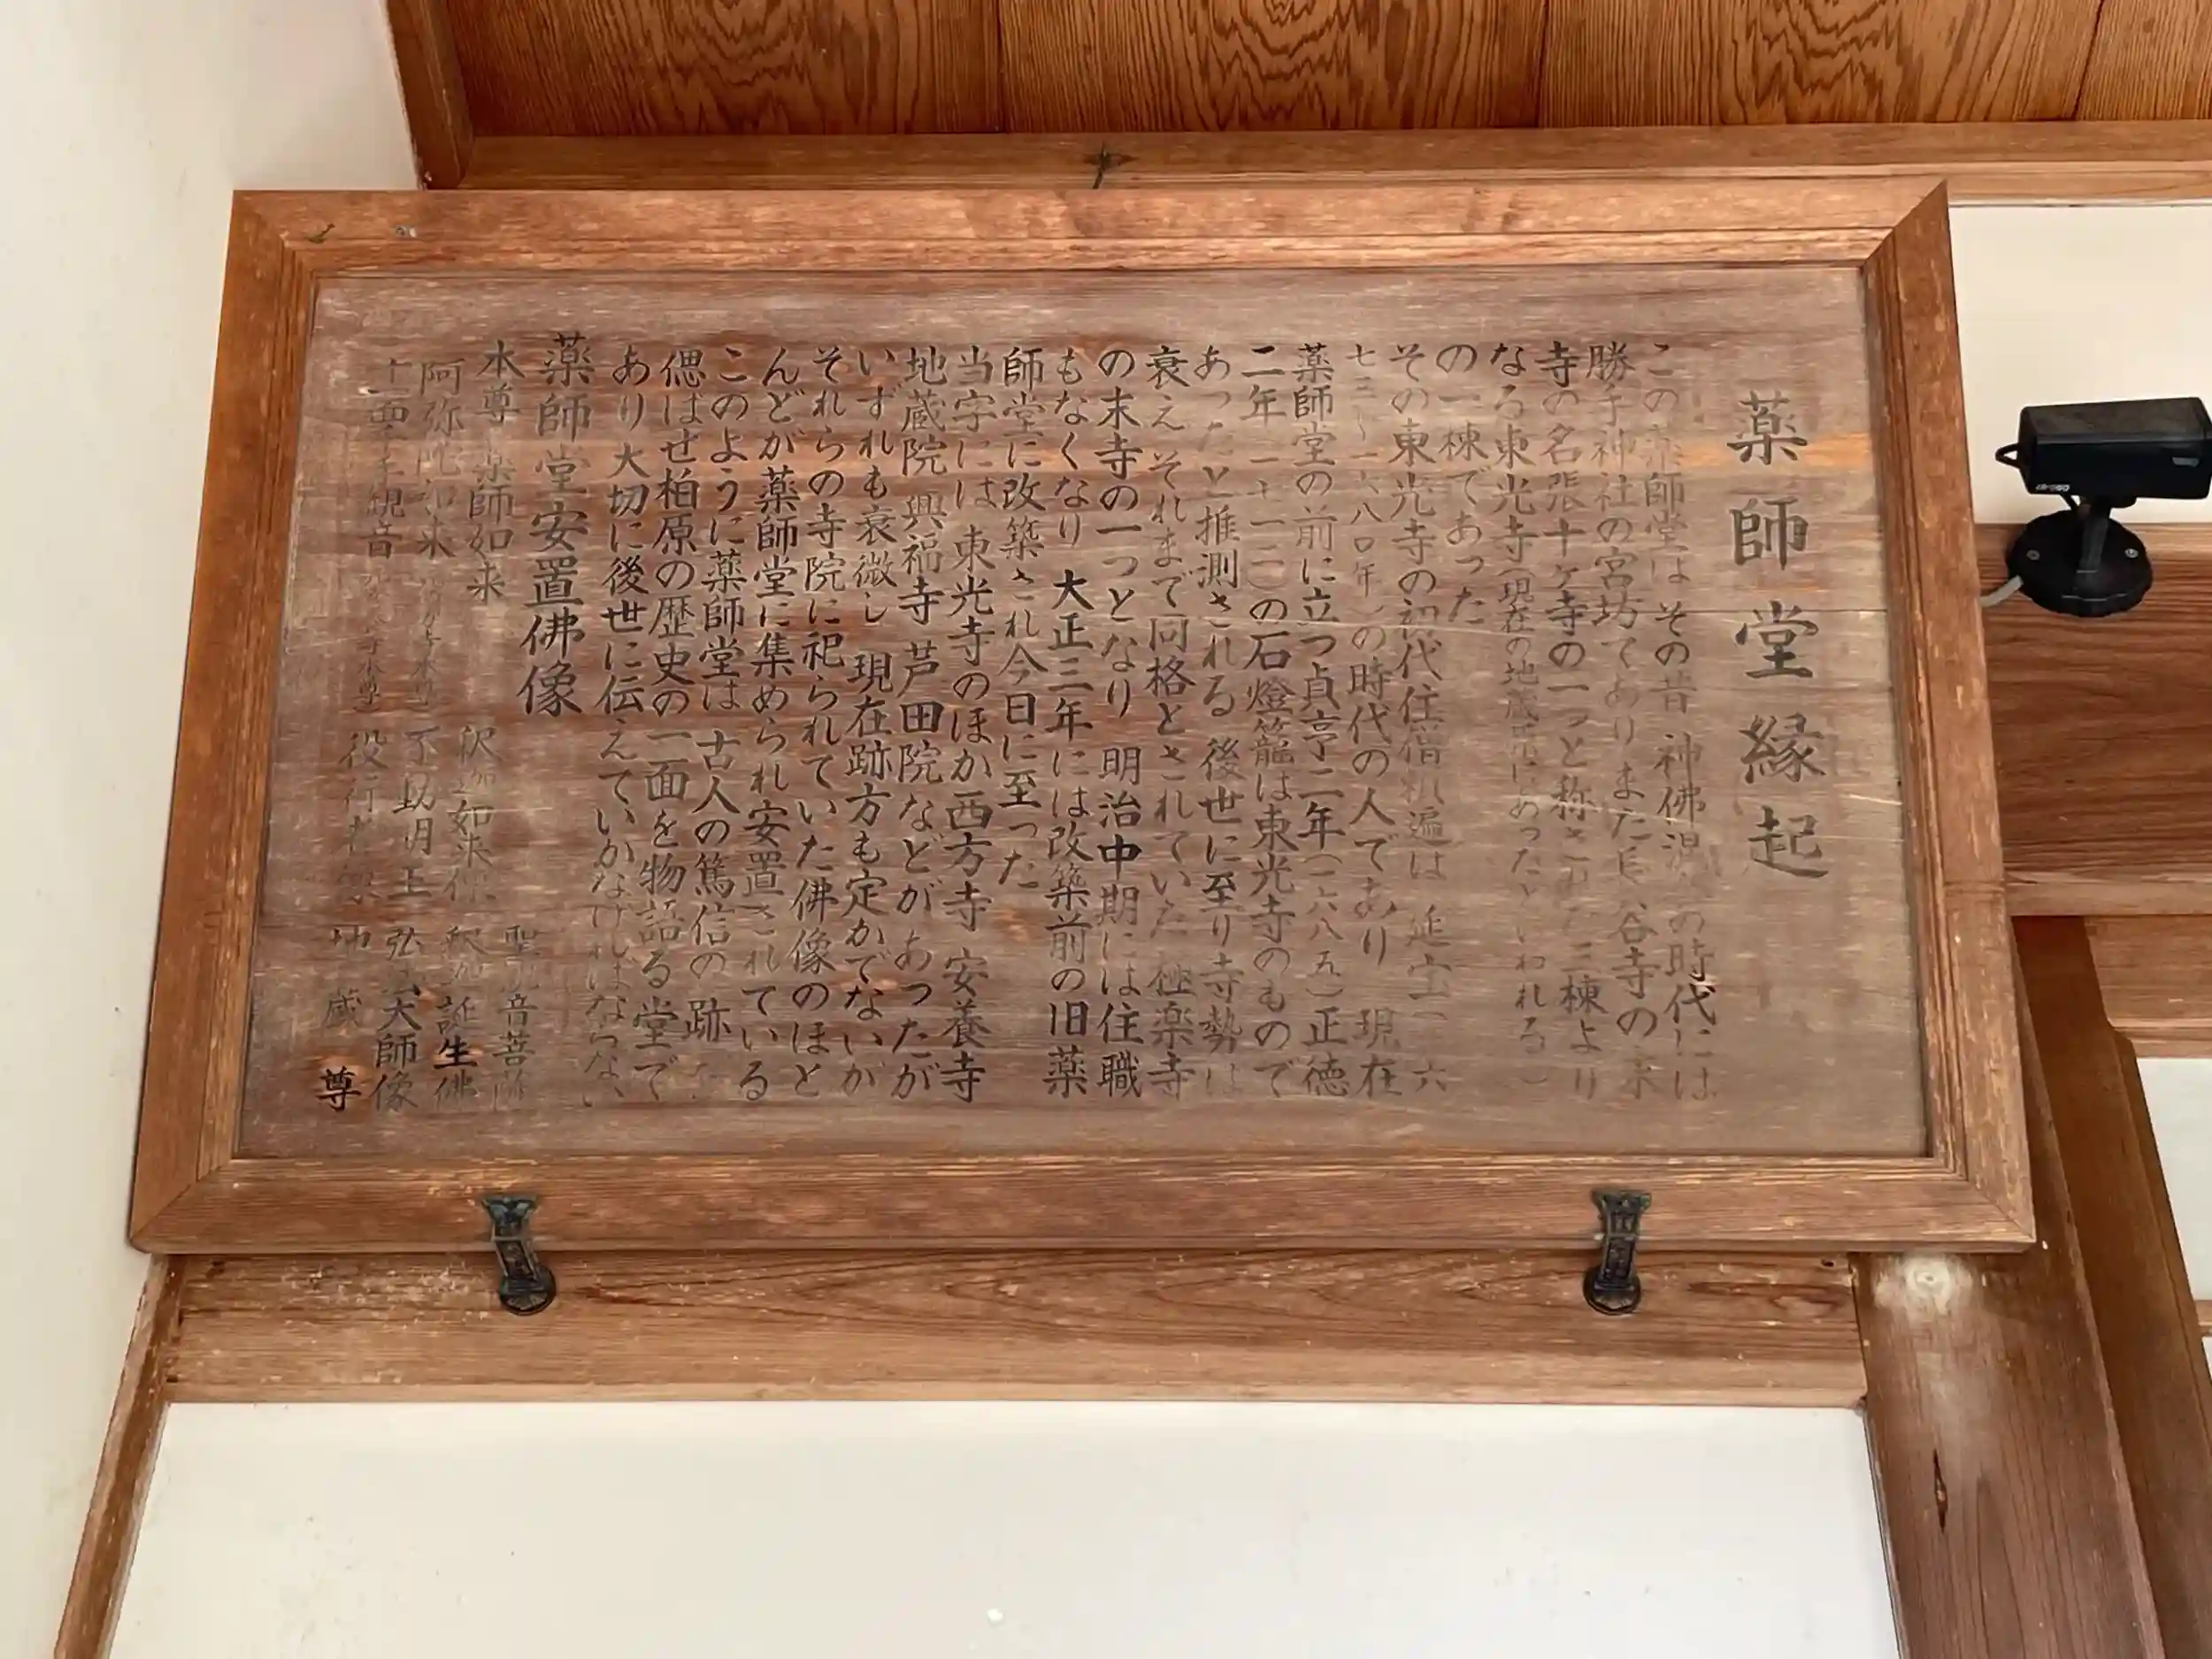 薬師堂縁起
この薬師堂は その昔 神佛混の時代には
勝手神社の宮坊てありまた長谷寺の末
寺の名張十ヶ寺の一つと称された三棟より
なる東光寺(現在の地蔵にあったといわれる)
の一棟であった
その東光寺の初代住僧は 延宝(一六
七三〜一六八〇年)の時代の人であり 現在
薬師堂の前に立つ貞享二年(一六八五)正徳
二年(一七一二)の石燈籠は東光寺のもので
あったと推測される 後世に至り寺勢は
衰え それまで同格とされていた 極楽寺
の末寺の一つとなり 明治中期には住職
もなくなり 大正三年には改築前の旧薬
師堂に改築され今日に至った
当字には 東光寺のほか西方寺 安養寺
地蔵院 興福寺 芦田院などがあったが
いずれも衰微し 現在跡方も定かでないが
それらの寺院に祀られていた佛像のほと
んどが薬師堂に集められ安置されている
このように薬師堂は 古人の篤信の跡
偲ばせ柏原の歴史の一面を物語る堂で
あり大切に後世に伝えていかなければならない
薬師堂安置佛像
本尊 薬師如来 釈迦如来像 聖観音菩薩
阿弥陀如来 不動明王 釈迦誕生佛
十一面千手観音 役行者像 弘法大師像
地蔵尊